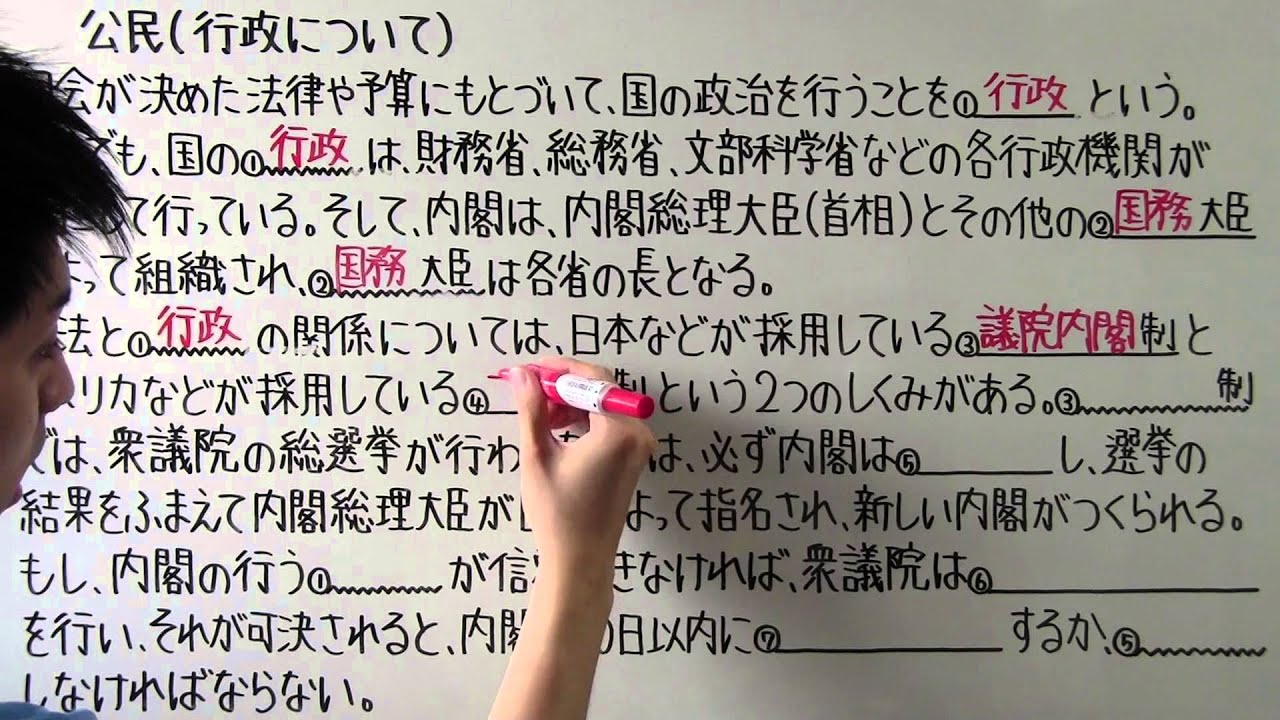 公民(行政について)
会が決めた法律や予算にもとづいて、国の政治を行うことを①行政という。
も、国の①行政は、財務省、総務省、文部科学省などの各行政機関が
て行っている。そして、内閣は、内閣総理大臣(首相)とその他の②国務大臣
よって組織され、②国務大臣は各省の長となる。
法と①行政の関係については、日本などが採用している③議院内閣制と
リカなどが採用している④制という2つのしくみがある。③制
は、衆議院の総選挙が行わは、必ず内閣は⑤し、選挙の
結果をふまえて内閣総理大臣がよって指名され、新しい内閣がつくられる。
もし、内閣の行う①が信きなければ、衆議院は⑥
を行い、それが可決されると、内閣0日以内に⑦するか、⑤
しなければならない。